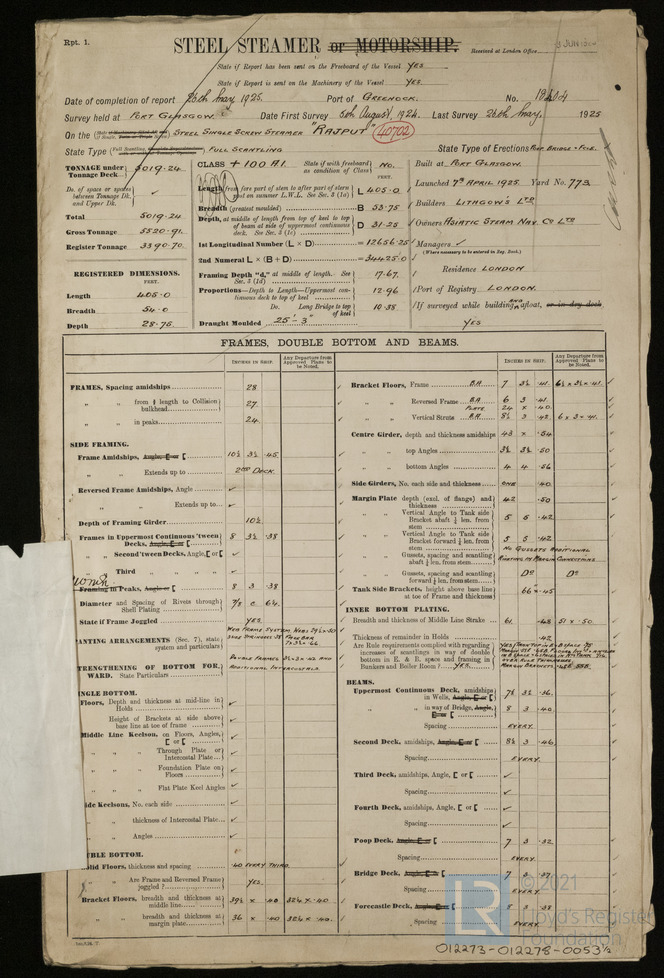 Rpt. 1.
STEEL STEAMER or MOTORSHIP.
Received at London Office
State if Report has been sent on the Freeboard of the Vessel YES
State if Report is sent on the Machinery of the Vessel YES
Date of completion of report 26th May 1925. Port of GREENOCK. No.
Survey held at PORT GLASGOW. Date First Survey 5th August, 1924. Last Survey 26th May. 1925
On the STEEL SINGLE SCREW STEAMER "RAJPUT" 40702
State Type FULL SCANTLING State Type of Erections POOP, BRIDGE & FCLE.
TONNAGE under Tonnage Deck 5019.24
Do. of space or spaces between Tonnage Dk. and Upper Dk. ✓
Total 5019.24
Gross Tonnage 5520.91
Register Tonnage 3390.70
REGISTERED DIMENSIONS.
FEET.
Length 405.0
Breadth 54.0
Depth 28.75
CLASS + 100 A1. State if with freeboard as condition of Class No.
FEET.
Length from fore part of stem to after part of stern post on summer L.W.L. See Sec. 3 (1a) L 405.0
Breadth (greatest moulded) B 53.75
Depth, at middle of length from top of keel to top of beam at side of uppermost continuous deck. See Sec. 3 (1c) D 31.25
1st Longitudinal Number (L × D) = 12656.25
2nd Numeral L × (B + D) = 34425.0
Framing Depth "d," at middle of length. See Sec. 3 (1d) 17.67
Proportions—Depth to Length—Uppermost continuous deck to top of keel 12.96
Do. Long Bridge to top of keel 10.38
Draught Moulded 25'-3"
Built at PORT GLASGOW.
Launched 7th APRIL 1925. Yard No. 773
Builders LITHGOW'S LTD
Owners ASIATIC STEAM NAV. CO LTD
Managers ✓
(Where necessary to be entered to Reg. Book.)
Residence LONDON
Port of Registry LONDON.
If surveyed while building and afloat, or in dry dock
YES
FRAMES, DOUBLE BOTTOM AND BEAMS.
INCHES IN SHIP. Any Departure from Approved Plans to be Noted.
INCHES IN SHIP. Any Departure from Approved Plans to be Noted.
FRAMES, Spacing amidships 28
" " from ⅕ length to Collision bulkhead 27
" " in peaks 24
SIDE FRAMING.
Frame Amidships, Angle, E or [ 10½ 3½ .45
" " Extends up to 2ND DECK
Reversed Frame Amidships, Angle ✓
" " Extends up to ✓
Depth of Framing Girder 10½
Frames in Uppermost Continuous 'tween Decks, Angle, E or [ 8 3½ .38
" " Second 'tween Decks, Angle, E or [ ✓
" " Third " " " ✓
Framing in Peaks, Angle or [ 8 3 .38
Diameter and Spacing of Rivets through Shell Plating 7/8 @ 64
State if Frame Joggled YES
PANTING ARRANGEMENTS (Sec. 7), state system and particulars
STRENGTHENING OF BOTTOM FORWARD. State Particulars DOUBLE FRAMES 3½×3×.42 AND ADDITIONAL INTERCOSTALS
SINGLE BOTTOM.
Floors, Depth and thickness at mid-line in Holds ✓
Height of Brackets at side above base line at toe of frame ✓
Middle Line Keelson, on Floors, Angles, E or [ ✓
" " Through Plate or Intercostal Plate ✓
" " Foundation Plate on Floors ✓
" " Flat Plate Keel Angles ✓
Side Keelsons, No. each side ✓
" " thickness of Intercostal Plate ✓
" " Angles ✓
DOUBLE BOTTOM.
Solid Floors, thickness and spacing .40 EVERY THIRD
" " Are Frame and Reversed Frame joggled? YES.
Bracket Floors, breadth and thickness at middle line 39½ × .40
" " breadth and thickness at margin plate 36 × .40
Bracket Floors, Frame B.A 7 3½ .41 6½ × 3½ × .41
" " Reversed Frame B.A 6 3 .41
" " Vertical Struts 5½ 3 .42 6 × 3 × .41
Centre Girder, depth and thickness amidships 43 × .54
" " top Angles 3½ 3½ .50
" " bottom Angles 4 4 .56
Side Girders, No. each side and thickness ONE .40
Margin Plate depth (excl. of flange) and thickness 42 .50
" " Vertical Angle to Tank side Bracket abaft ¼ len. from stem 5 5 .42
" " Vertical Angle to Tank side Bracket forward ¼ len. from stem 5 5 .42
" " Gussets, spacing and scantling abaft ¼ len. from stem NO GUSSETS ADDITIONAL RIVETING IN MARGIN CONNECTIONS
" " Gussets, spacing and scantling forward ¼ len. from stem Do Do
Tank Side Brackets, height above base line at toe of Frame and thickness 66" × .45
INNER BOTTOM PLATING.
Breadth and thickness of Middle Line Strake 61 .48 51 × .50
Thickness of remainder in Holds .42
Are Rule requirements complied with regarding increases of scantlings in way of double bottom in E. & B. space and framing in Bunkers and Boiler Room? YES
BEAMS.
Uppermost Continuous Deck, amidships in Wells, Angle, E or [ 7½ 3½ .36
" " in way of Bridge, Angle, E or [ 8 3 .40
Spacing EVERY
Second Deck, amidships, Angle, E or [ 8½ 3 .46
Spacing EVERY
Third Deck, amidships, Angle, E or [ ✓
Spacing ✓
Fourth Deck, amidships, Angle, E or [ ✓
Spacing ✓
Poop Deck, Angle, E or [ 7 3 .32
Spacing EVERY
Bridge Deck, Angle, E or [ 7 3 .37
Spacing EVERY
Forecastle Deck, Angle, E or [ 8 3 .38
Spacing EVERY
© 2021
LR
Lloyd's Register
Foundation
012273-012278-0053½